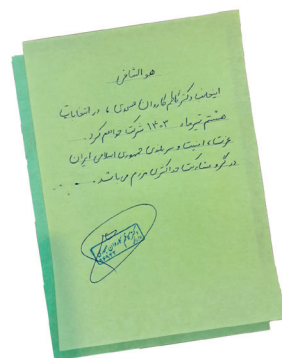 هو الشافی
اینجانب دکتر کاظم کاروان صبوری، در انتخابات
هشتم تیرماه ۱۴۰۳ شرکت خواهم کرد.
عزت، امنیت و سربلندی جمهوری اسلامی ایران
در گرو مشارکت حداکثری مردم می‌باشد.